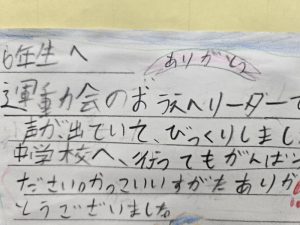 6年生へ
ありがとう
運動会のおうえんリーダーで
声が出ていて、びっくりしまし
中学校へ、行ってもがんば
ださい。かっこいいすがたありが
とうございました。